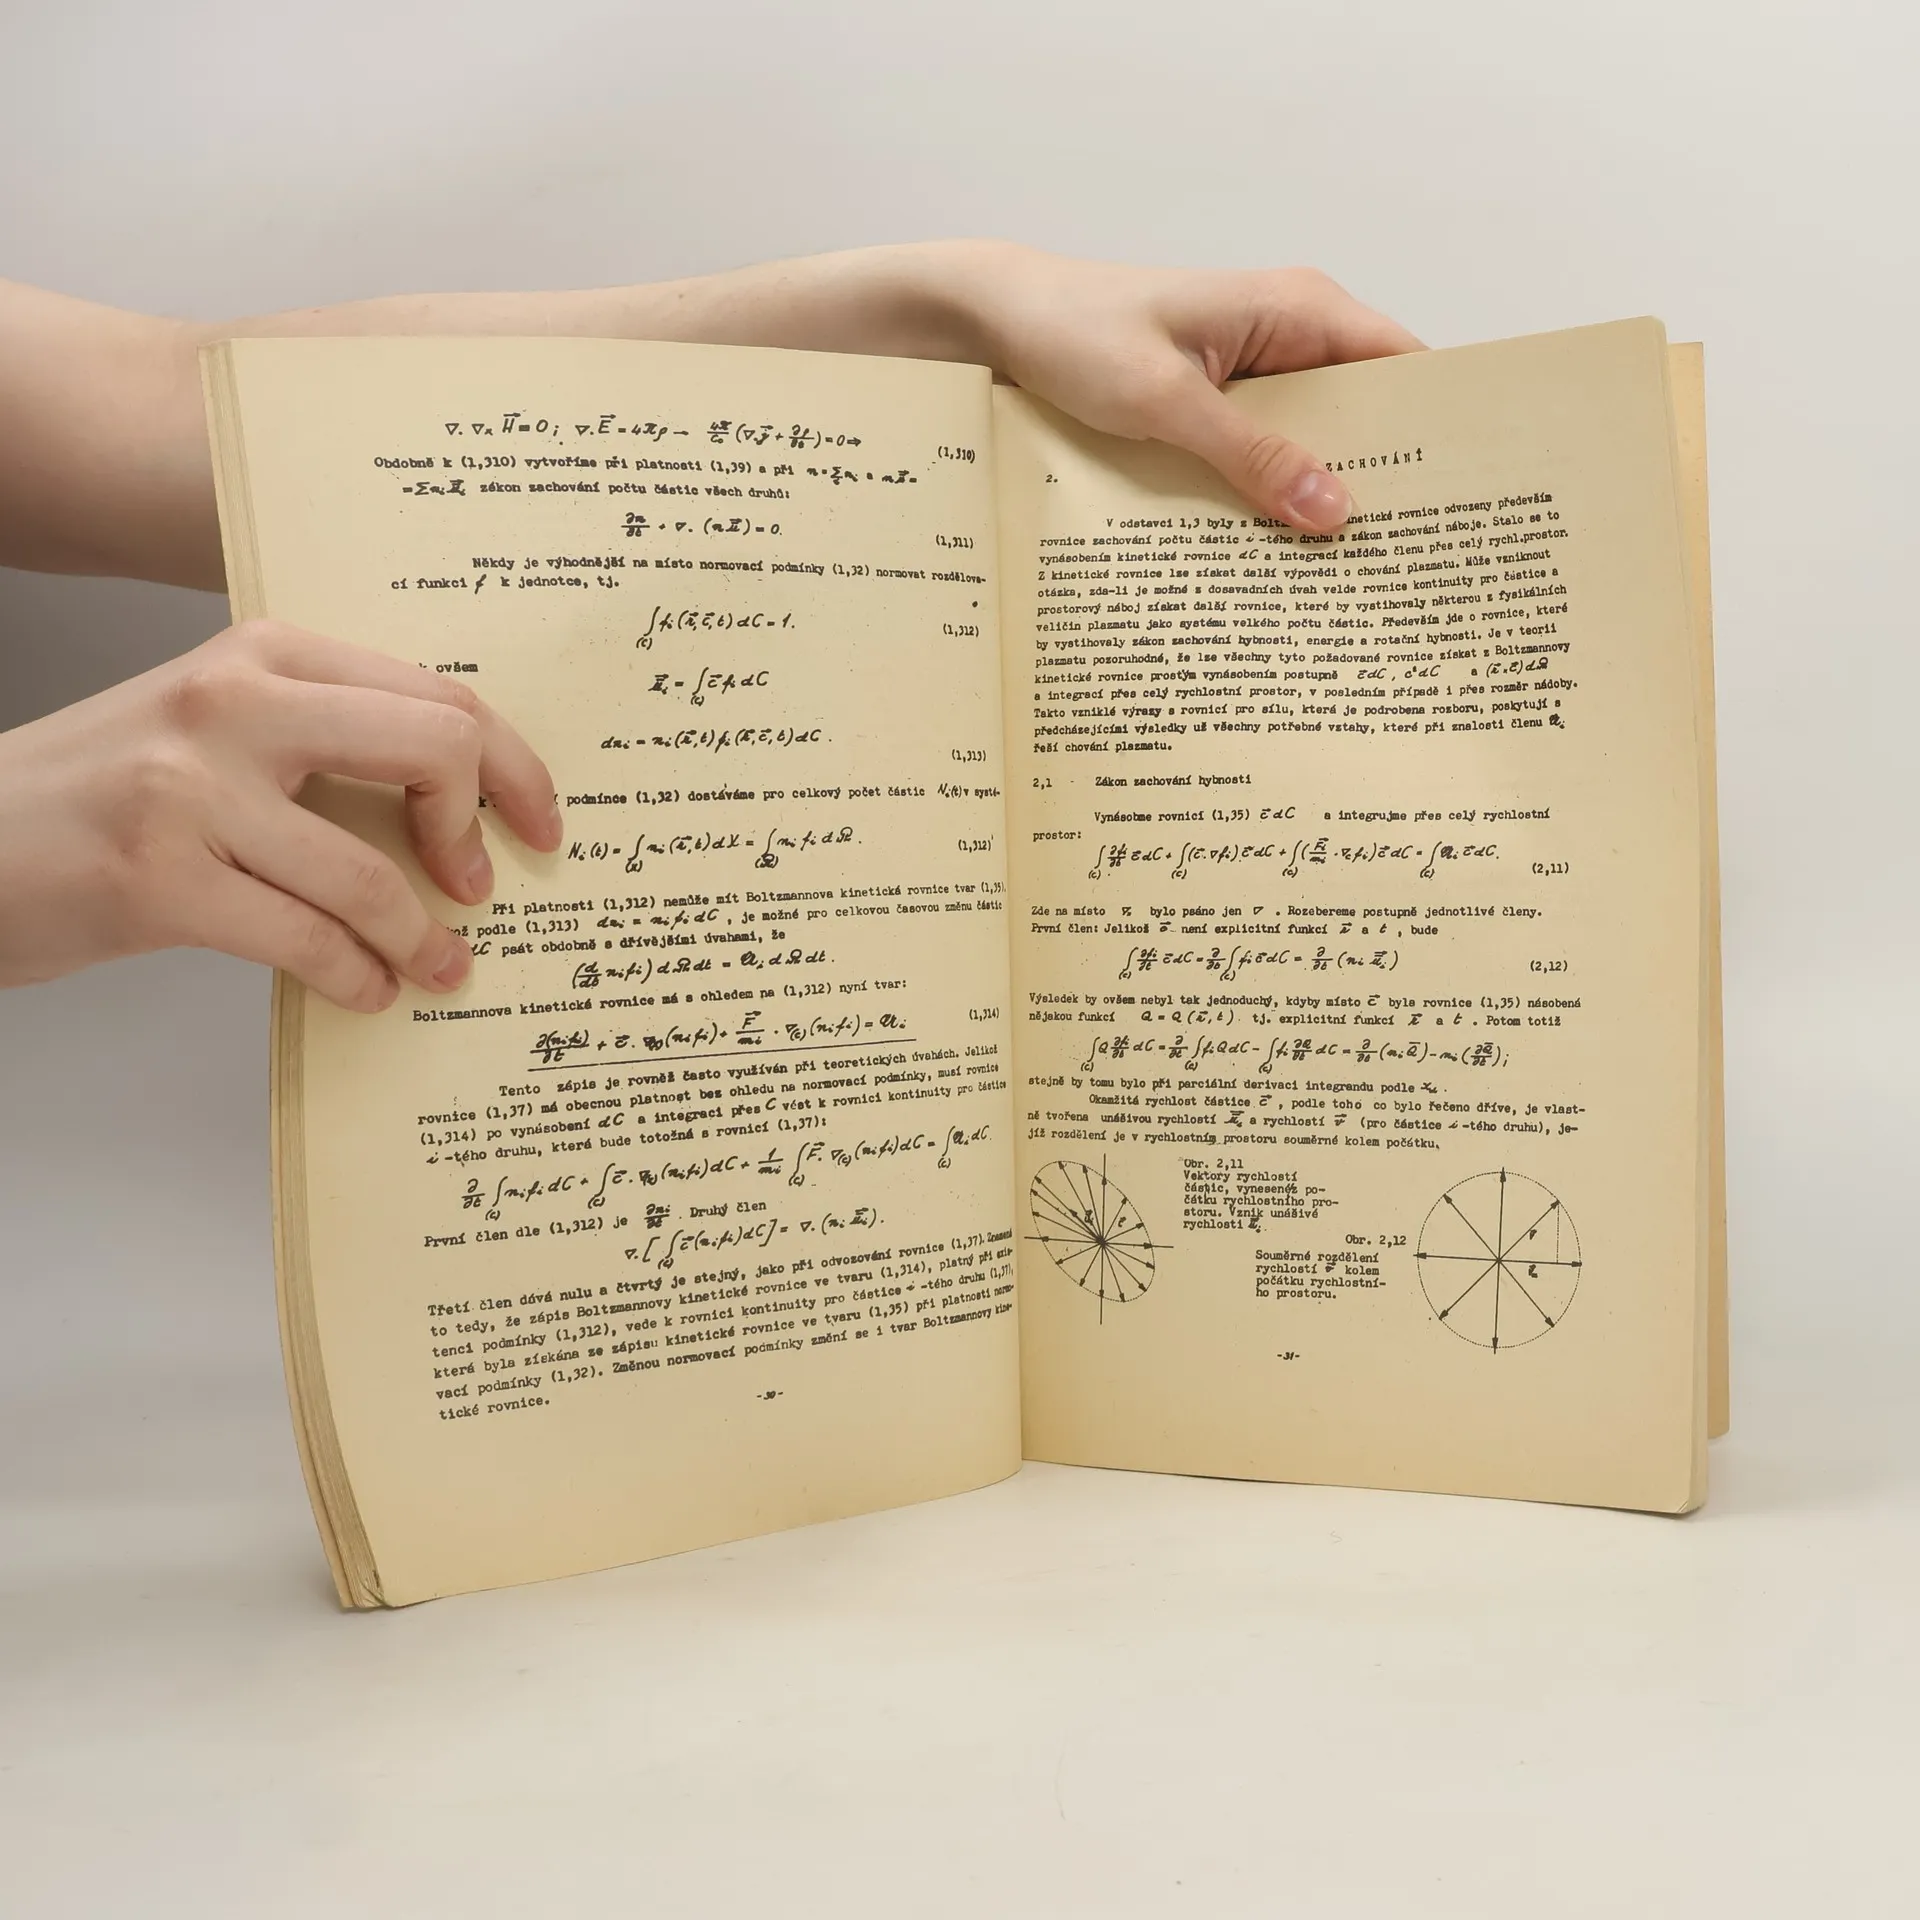 ∇. ∇× H⃗ = 0 ; ∇. E⃗ = 4πρ → 4π/c₀ (∇.j⃗ + ∂ρ/∂t) = 0 ⇒
(1,310)
Obdobně k (1,310) vytvoříme při platnosti (1,39) a při n = Σ nᵢ a n u⃗ =
= Σ nᵢ u⃗ᵢ zákon zachování počtu částic všech druhů:
∂n/∂t + ∇. (n u⃗) = 0.
(1,311)
Někdy je výhodnější na místo normovací podmínky (1,32) normovat rozdělova-
cí funkci f k jednotce, tj.
∫(C) fᵢ (r⃗, c⃗, t) dC = 1.
(1,312)
ovšem
u⃗ᵢ = ∫(C) c⃗ fᵢ dC
dnᵢ = nᵢ (r⃗, t) fᵢ (r⃗, c⃗, t) dC .
(1,313)
podmínce (1,32) dostáváme pro celkový počet částic Nᵢ(t) v systé-
Nᵢ (t) = ∫(X) nᵢ (r⃗, t) dX = ∫(Ω) nᵢ fᵢ dΩ .
(1,312)'
Při platnosti (1,312) nemůže mít Boltzmannova kinetická rovnice tvar (1,35).
podle (1,313) dnᵢ = nᵢ fᵢ dC , je možné pro celkovou časovou změnu částic
dC psát obdobně s dřívějšími úvahami, že
(d/dt nᵢ fᵢ) dΩ dt = 𝒰ᵢ dΩ dt .
Boltzmannova kinetická rovnice má s ohledem na (1,312) nyní tvar:
∂(nᵢfᵢ)/∂t + c⃗ . ∇(nᵢfᵢ) + F⃗/mᵢ . ∇(c)(nᵢfᵢ) = 𝒰ᵢ
(1,314)
Tento zápis je rovněž často využíván při teoretických úvahách. Jelikož
rovnice (1,37) má obecnou platnost bez ohledu na normovací podmínky, musí rovnice
(1,314) po vynásobení dC a integraci přes C vést k rovnici kontinuity pro částice
i -tého druhu, která bude totožná s rovnicí (1,37):
∂/∂t ∫(c) nᵢfᵢ dC + ∫(c) c⃗ . ∇(nᵢfᵢ) dC + 1/mᵢ ∫(c) F⃗ . ∇(c)(nᵢfᵢ) dC = ∫(c) 𝒰ᵢ dC.
První člen dle (1,312) je ∂nᵢ/∂t . Druhý člen
∇. [ ∫(c) c⃗ (nᵢfᵢ) dC ] = ∇. (nᵢ u⃗ᵢ).
Třetí člen dává nulu a čtvrtý je stejný, jako při odvozování rovnice (1,37). Znamená
to tedy, že zápis Boltzmannovy kinetické rovnice ve tvaru (1,314), platný při exis-
tenci podmínky (1,312), vede k rovnici kontinuity pro částice i -tého druhu (1,37),
která byla získána ze zápisu kinetické rovnice ve tvaru (1,35) při platnosti normo-
vací podmínky (1,32). Změnou normovací podmínky změní se i tvar Boltzmannovy kine-
tické rovnice.
-30-
2. ZACHOVÁNÍ
V odstavci 1,3 byly z kinetické rovnice odvozeny především
rovnice zachování počtu částic i -tého druhu a zákon zachování náboje. Stalo se to
vynásobením kinetické rovnice dC a integrací každého členu přes celý rychl.prostor.
Z kinetické rovnice lze získat další výpovědi o chování plazmatu. Může vzniknout
otázka, zda-li je možné z dosavadních úvah vedle rovnice kontinuity pro částice a
prostorový náboj získat další rovnice, které by vystihovaly některou z fysikálních
veličin plazmatu jako systému velkého počtu částic. Především jde o rovnice, které
by vystihovaly zákon zachování hybnosti, energie a rotační hybnosti. Je v teorii
plazmatu pozoruhodné, že lze všechny tyto požadované rovnice získat z Boltzmannovy
kinetické rovnice prostým vynásobením postupně c⃗dC , c²dC a (r⃗ × c⃗) dΩ
a integrací přes celý rychlostní prostor, v posledním případě i přes rozměr nádoby.
Takto vzniklé výrazy s rovnicí pro sílu, která je podrobena rozboru, poskytují s
předcházejícími výsledky už všechny potřebné vztahy, které při znalosti členu 𝒰ᵢ
řeší chování plazmatu.
2,1 - Zákon zachování hybnosti
Vynásobme rovnici (1,35) c⃗ dC a integrujme přes celý rychlostní
prostor:
∫(c) ∂fᵢ/∂t c⃗ dC + ∫(c) (c⃗ . ∇fᵢ) c⃗ dC + ∫(c) (F⃗ᵢ/mᵢ . ∇c fᵢ) c⃗ dC = ∫(c) 𝒰ᵢ c⃗ dC.
(2,11)
Zde na místo ∇ᵣ bylo psáno jen ∇ . Rozebereme postupně jednotlivé členy.
První člen: Jelikož c⃗ není explicitní funkcí r⃗ a t , bude
∫(c) ∂fᵢ/∂t c⃗ dC = ∂/∂t ∫(c) fᵢ c⃗ dC = ∂/∂t (nᵢ u⃗ᵢ)
(2,12)
Výsledek by ovšem nebyl tak jednoduchý, kdyby místo c⃗ byla rovnice (1,35) násobená
nějakou funkcí Q = Q (r⃗, t) tj. explicitní funkcí r⃗ a t . Potom totiž
∫(c) Q ∂fᵢ/∂t dC = ∂/∂t ∫(c) fᵢ Q dC − ∫(c) fᵢ ∂Q/∂t dC = ∂/∂t (nᵢ Q̄) − nᵢ (∂Q̄/∂t) ;
stejně by tomu bylo při parciální derivaci integrandu podle xₖ .
Okamžitá rychlost částice c⃗ , podle toho co bylo řečeno dříve, je vlast-
ně tvořena unášivou rychlostí u⃗ᵢ a rychlostí v⃗ (pro částice i -tého druhu), je-
jíž rozdělení je v rychlostním prostoru souměrné kolem počátku.
Obr. 2,11
Vektory rychlostí
částic, vynesené z po-
čátku rychlostního pro-
storu. Vznik unášivé
rychlosti u⃗ᵢ.
Obr. 2,12
Souměrné rozdělení
rychlostí v⃗ kolem
počátku rychlostní-
ho prostoru.
-31-